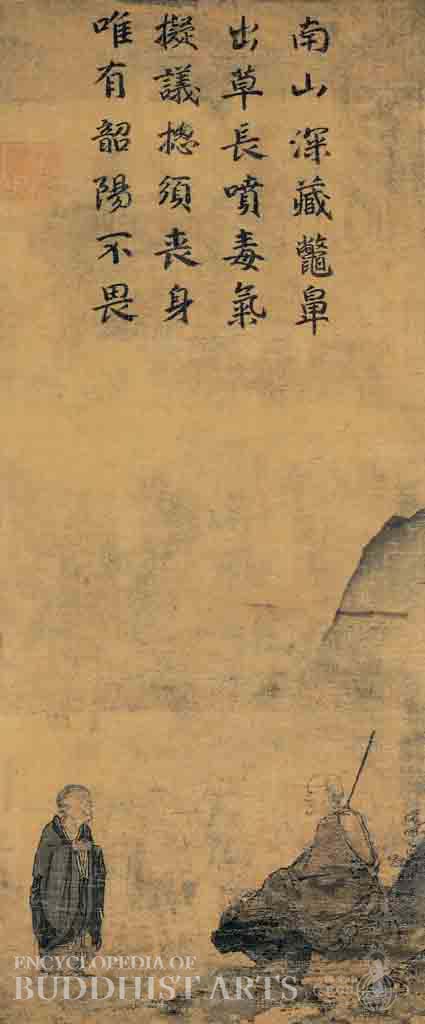 南山深藏鼈鼻
出草長噴毒氣
擬議揔須喪身
唯有韶陽不畏
ENCYCLOPEDIA OF
BUDDHIST ARTS